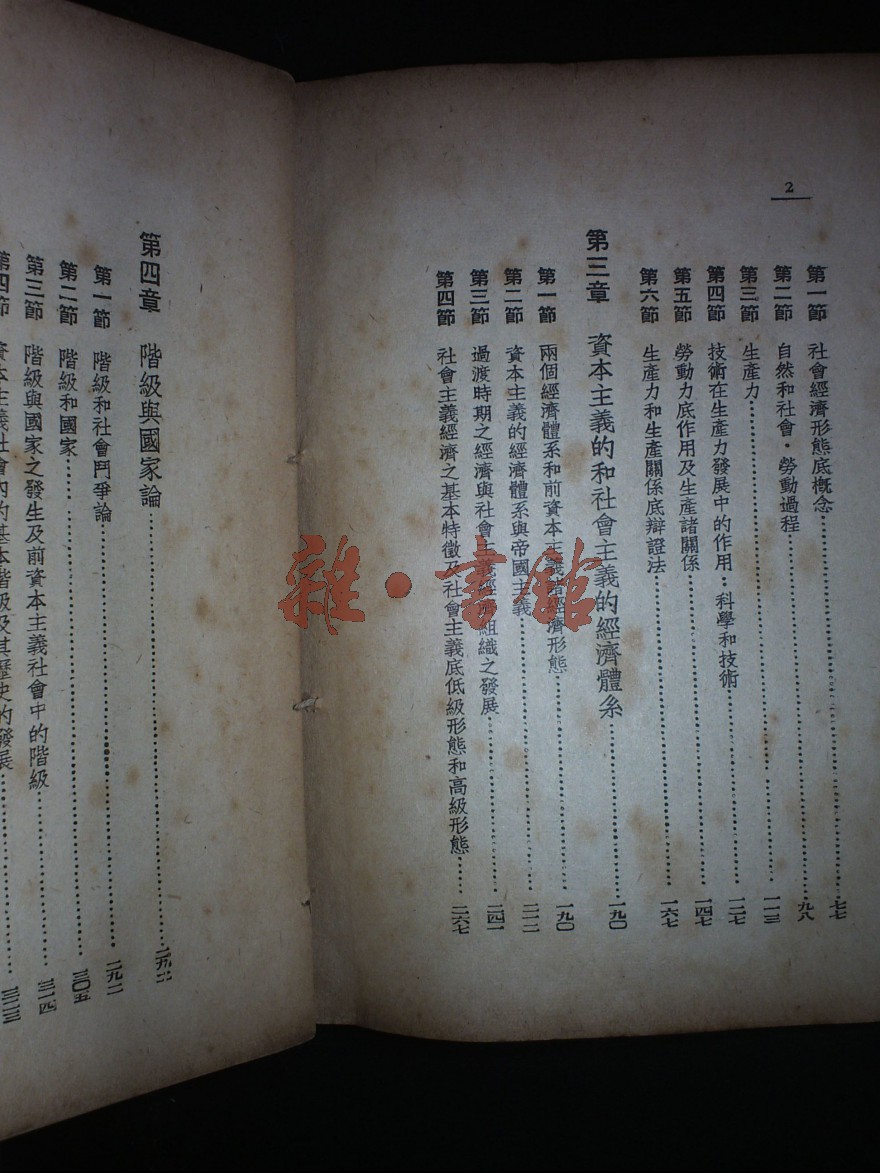 2
第一節 社會經濟形態底概念……七七
第二節 自然和社會·勞動過程……九八
第三節 生產力……一一三
第四節 技術在生產力發展中的作用·科學和技術……一二七
第五節 勞動力底作用及生產諸關係……一四七
第六節 生產力和生產關係底辯證法……一六七
第三章 資本主義的和社會主義的經濟體系……一九〇
第一節 兩個經濟體系和前資本主義諸經濟形態……一九〇
第二節 資本主義的經濟體系與帝國主義……二一二
第三節 過渡時期之經濟與社會主義經濟組織之發展……二四一
第四節 社會主義經濟之基本特徵及社會主義底低級形態和高級形態……二六七
第四章 階級與國家論……二九二
第一節 階級和社會鬥爭論……二九二
第二節 階級和國家……三〇五
第三節 階級與國家之發生及前資本主義社會中的階級……三一四
第四節 資本主義社會內的基本階級及其歷史的發展……三二三
雜·書館